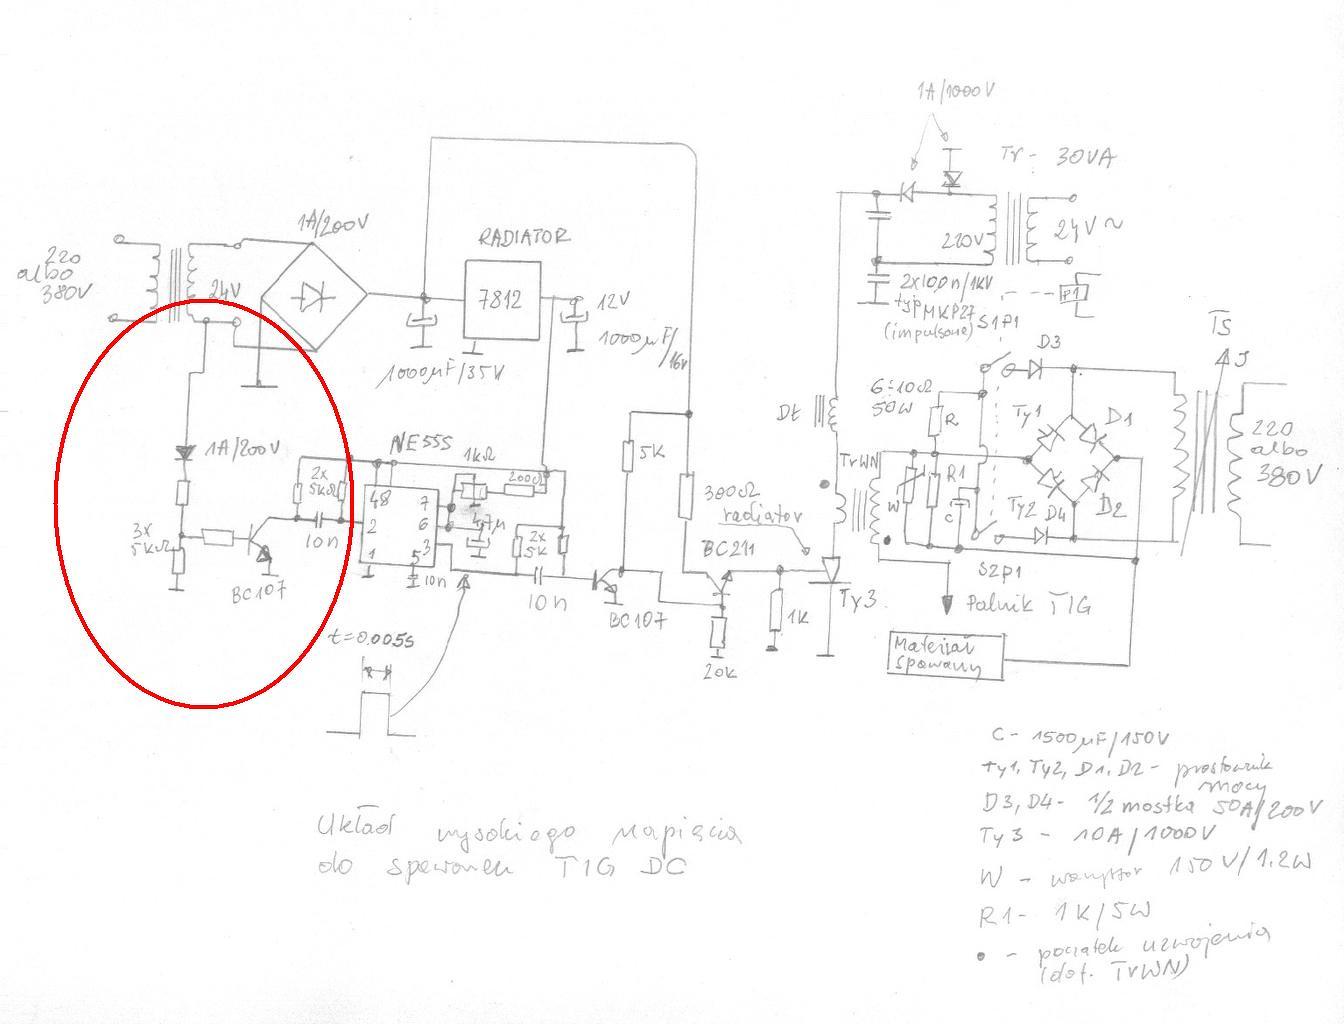 1A/1000V
Tr - 30VA
1A/200V
RADIATOR
220
albo
380V
24V
7812
12V
1000µF/35V
1000µF/16V
220V
24V~
2x100n/1KV
typ MKP27
(impulsowe)
P1
S1P1
D3
TS
J
6÷10Ω
50W
R
Ty1
D1
Dł
TrWN
W
R1
C
Ty2
D4
D2
220
albo
380V
1A/200V
NE555
1kΩ
200Ω
2x
5kΩ
4
8
7
2
6
3
1
5
4,7µ
10n
10n
3x
5kΩ
BC107
2x
5K
10n
5K
300Ω
radiator
BC211
BC107
1K
20K
Ty3
S2P1
Palnik TIG
Materiał
Spawany
t=0.005s
C - 1500µF/150V
Ty1, Ty2, D1, D2 - prostownik
mocy
D3, D4 - 1/2 mostka 50A/200V
Ty3 - 10A/1000V
W - warystor 150V/1.2W
R1 - 1K/5W
• - początek uzwojenia
(dot. TrWN)
Układ wysokiego napięcia
do spawarek TIG DC